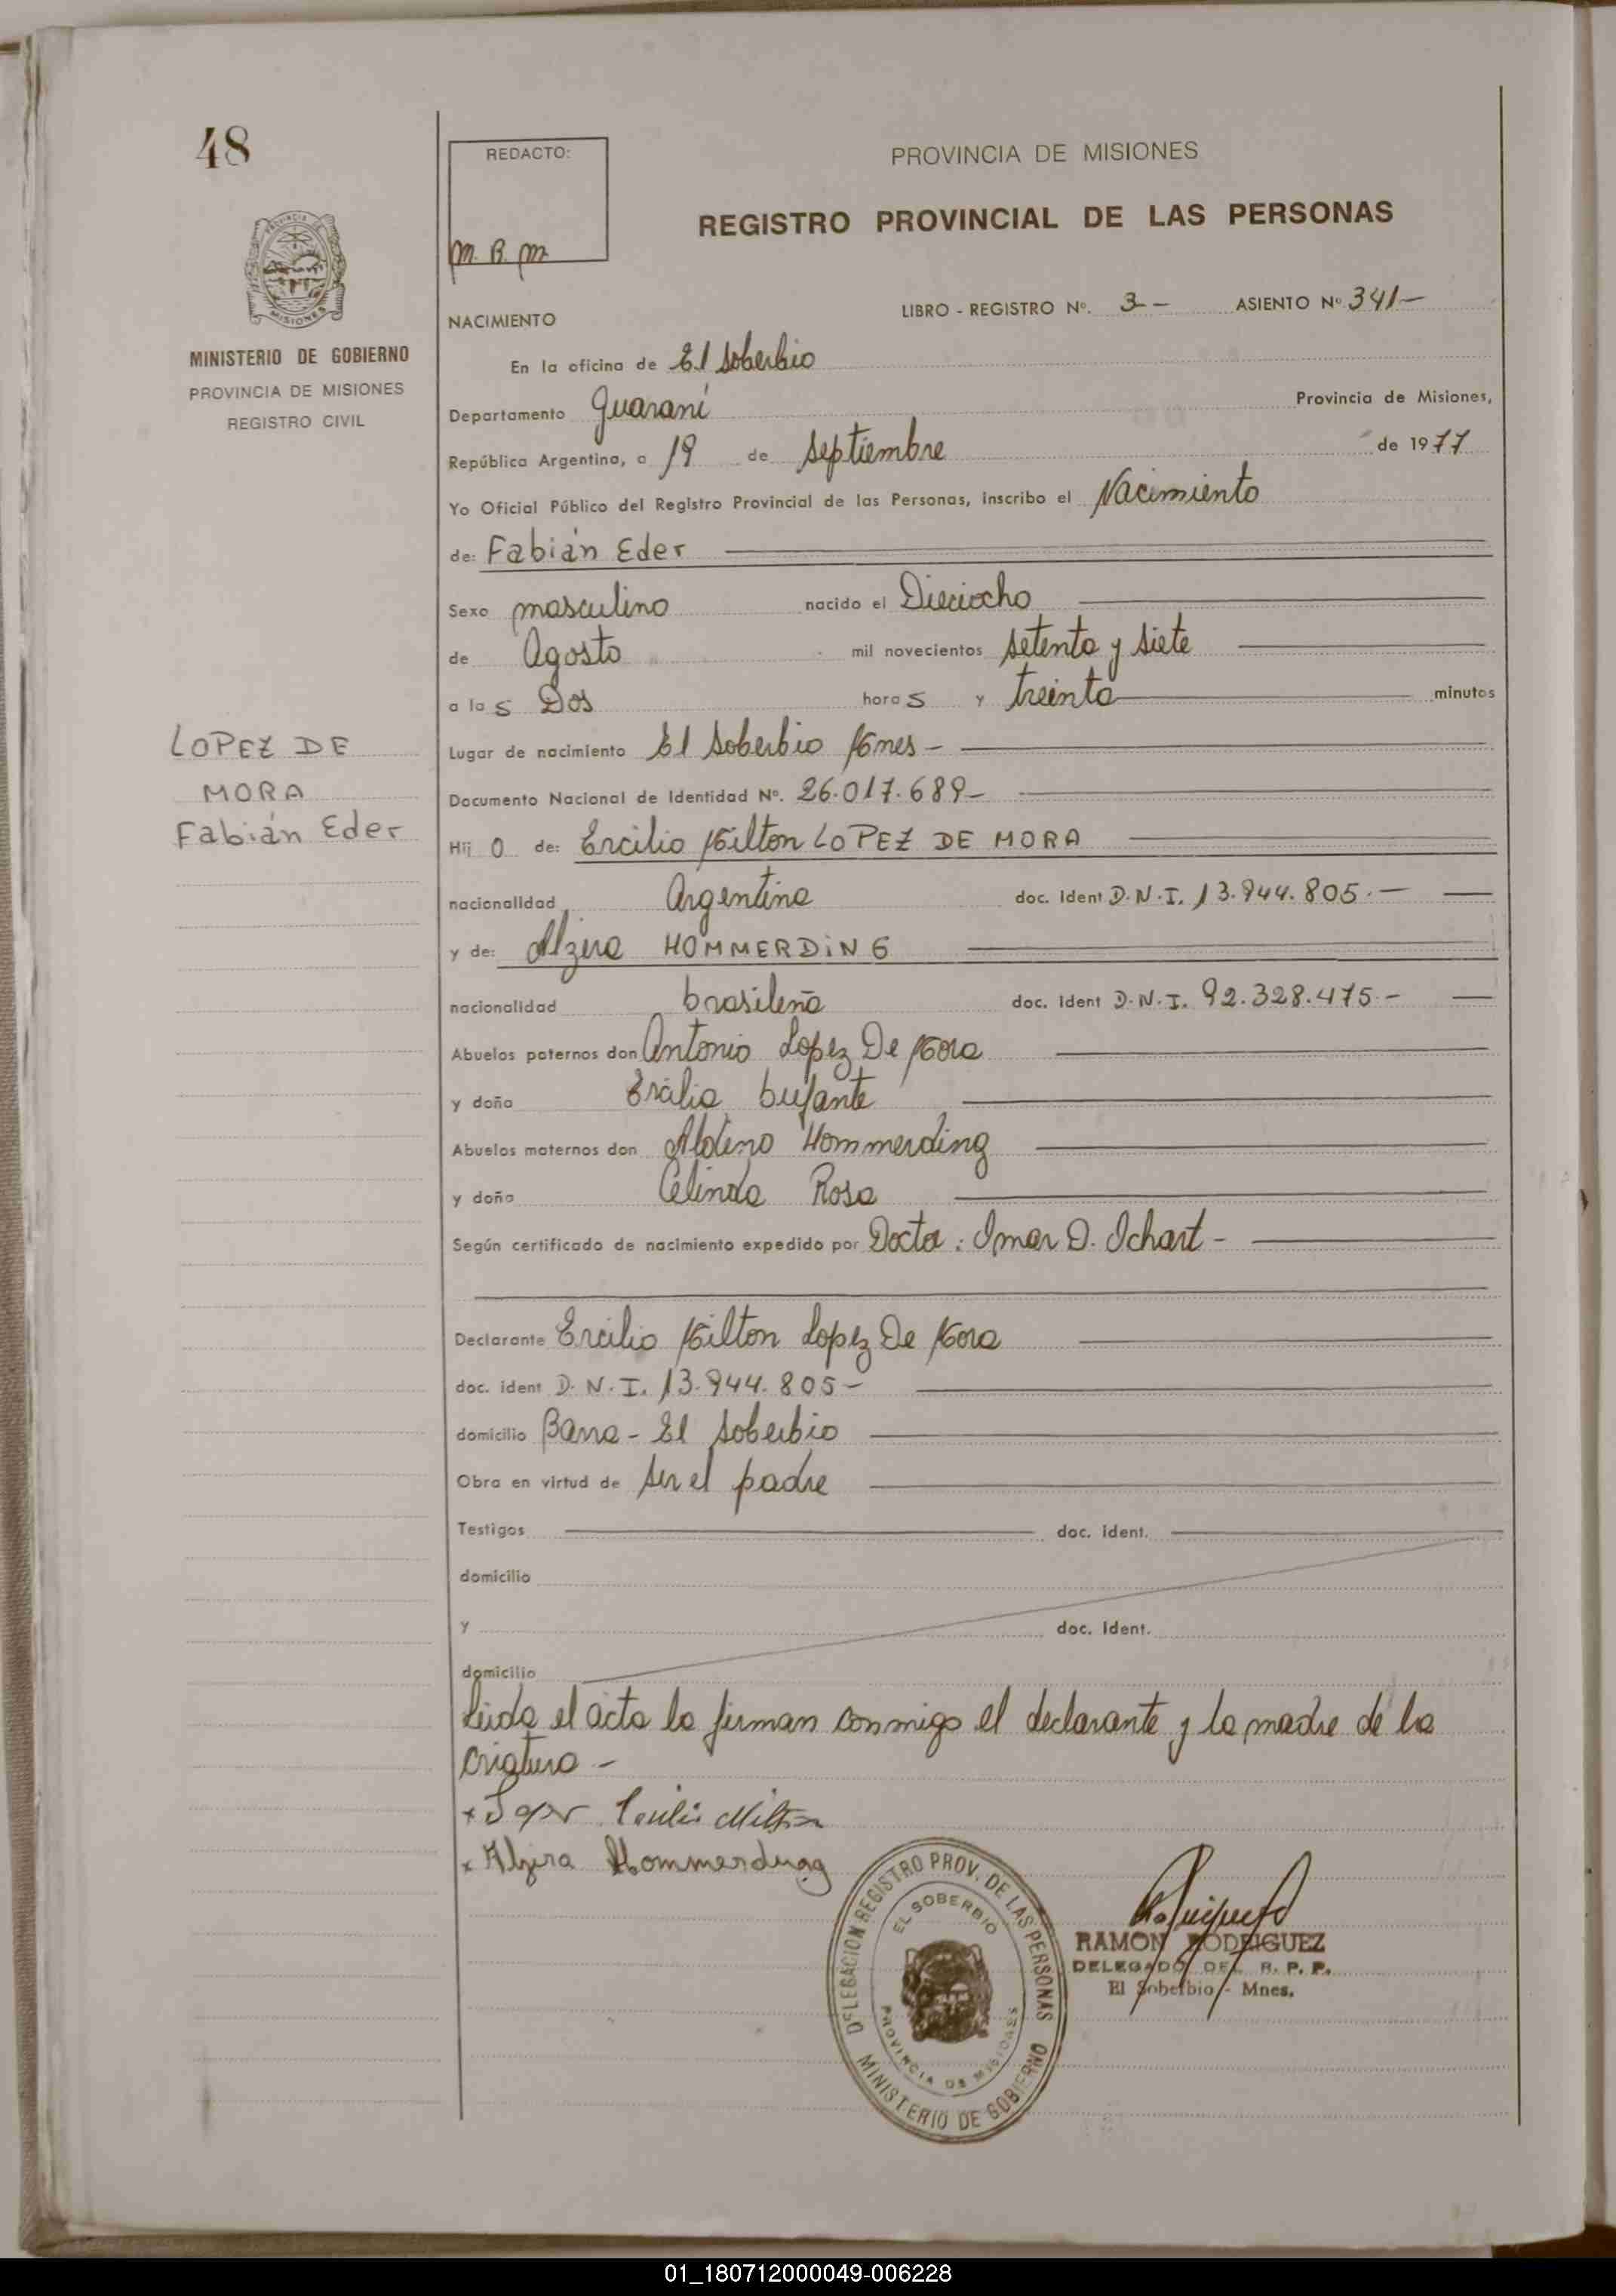 48
REDACTO:
M. B. M.
PROVINCIA DE MISIONES
REGISTRO PROVINCIAL DE LAS PERSONAS
PROVINCIA MISIONES
MINISTERIO DE GOBIERNO
PROVINCIA DE MISIONES
REGISTRO CIVIL
LIBRO - REGISTRO Nº. 3 - ASIENTO Nº 341 -
NACIMIENTO
En la oficina de El Soberbio
Departamento Guaraní Provincia de Misiones,
República Argentina, a 19 de Septiembre de 1977
Yo Oficial Público del Registro Provincial de las Personas, inscribo el Nacimiento
de: Fabián Eder
Sexo masculino nacido el Dieciocho
de Agosto mil novecientos setenta y siete
a las Dos horas y treinta minutos
Lugar de nacimiento El Soberbio Mnes -
Documento Nacional de Identidad Nº. 26.017.689 -
LOPEZ DE
MORA
Fabián Eder
Hijo de: Ercilio Milton LOPEZ DE MORA
nacionalidad Argentina doc. Ident D.N.I. 13.944.805. -
y de: Alzira HOMMERDING
nacionalidad brasileña doc. Ident D.N.I. 92.328.475. -
Abuelos paternos don Antonio Lopez De Mora
y doña Ercilia
Abuelos maternos don Hommerding
y doña Celinda Rosa
Según certificado de nacimiento expedido por Doctor: Omar D. Ichart -
Declarante Ercilio Milton Lopez De Mora
doc. ident D.N.I. 13.944.805 -
domicilio Barra - El Soberbio
Obra en virtud de ser el padre
Testigos doc. Ident.
domicilio
y doc. Ident.
domicilio
Leida el acta la firman conmigo el declarante y la madre de la
criatura -
x Milton
x Alzira Hommerding
DELEGACION REGISTRO PROV. DE LAS PERSONAS
EL SOBERBIO
PROVINCIA DE MISIONES
MINISTERIO DE GOBIERNO
RAMON RODRIGUEZ
DELEGADO DEL R. P. P.
El Soberbio - Mnes.
01_180712000049-006228